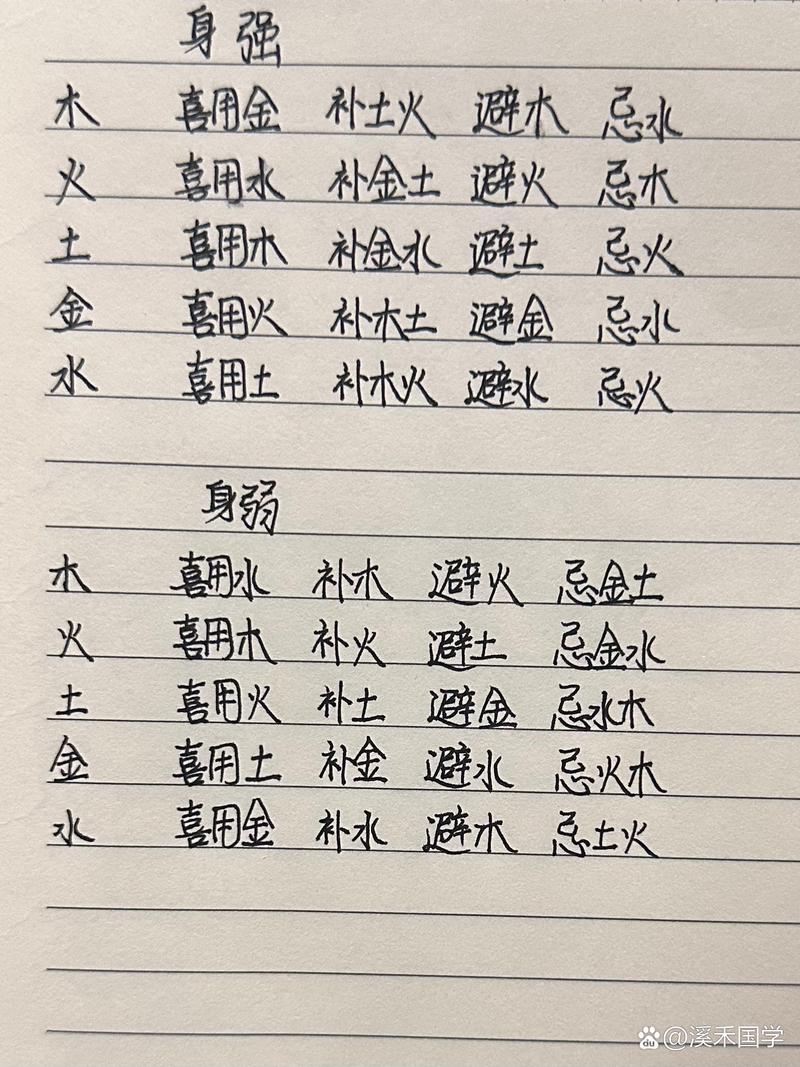 身强
木 喜用金 补土火 避木 忌水
火 喜用水 补金土 避火 忌木
土 喜用木 补金水 避土 忌火
金 喜用火 补木土 避金 忌水
水 喜用土 补木火 避水 忌火
身弱
木 喜用水 补木 避火 忌金土
火 喜用木 补火 避土 忌金水
土 喜用火 补土 避金 忌水木
金 喜用土 补金 避水 忌火木
水 喜用金 补水 避木 忌土火
du @溪禾国学